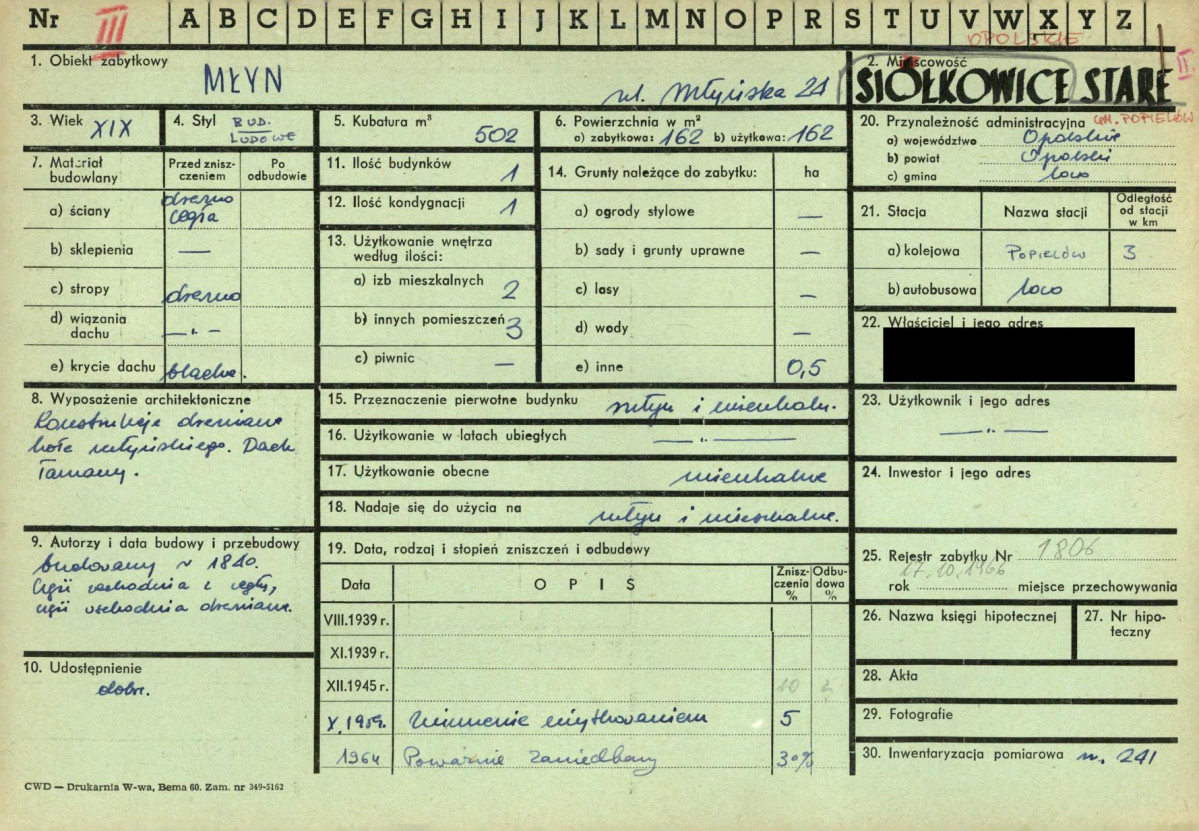 Nr III A B C D E F G H I J K L M N O P R S T U V W X Y Z
OPOLSKIE
1. Obiekt zabytkowy
MŁYN
ul. Młyńska 21
2. Miejscowość
SIÓŁKOWICE STARE
II.
GM. POPIELÓW
3. Wiek XIX
4. Styl BUD. LUDOWE
5. Kubatura m³ 502
6. Powierzchnia w m²
a) zabytkowa: 162 b) użytkowa: 162
20. Przynależność administracyjna
a) województwo Opolskie
b) powiat Opolski
c) gmina loco
7. Materiał budowlany
Przed zniszczeniem
Po odbudowie
a) ściany drewno cegła
b) sklepienia —
c) stropy drewno
d) wiązania dachu —„—
e) krycie dachu blacha.
11. Ilość budynków 1
12. Ilość kondygnacji 1
13. Użytkowanie wnętrza według ilości:
a) izb mieszkalnych 2
b) innych pomieszczeń 3
c) piwnic —
14. Grunty należące do zabytku: ha
a) ogrody stylowe —
b) sady i grunty uprawne —
c) lasy —
d) wody —
e) inne 0,5
21. Stacja
Nazwa stacji
Odległość od stacji w km
a) kolejowa POPIELÓW 3
b) autobusowa loco
22. Właściciel i jego adres
8. Wyposażenie architektoniczne
Konstrukcje drewniane
koła młyńskiego. Dach
łamany.
15. Przeznaczenie pierwotne budynku młyn i mieszkaln.
16. Użytkowanie w latach ubiegłych —„—
17. Użytkowanie obecne mieszkalne
18. Nadaje się do użycia na młyn i mieszkalne.
23. Użytkownik i jego adres
—„—
24. Inwestor i jego adres
9. Autorzy i data budowy i przebudowy
budowany w
wschodnia z cegły,
wschodnia drewniana.
10. Udostępnienie
dobr.
19. Data, rodzaj i stopień zniszczeń i odbudowy
Data
OPIS
Zniszczenia %
Odbudowa %
VIII.1939 r.
XI.1939 r.
XII.1945 r. 10
X.1959. Zniszczenie użytkowaniem 5
1964 Poważnie zaniedbany 30%
25. Rejestr zabytku Nr 1806
17.10.1966
rok miejsce przechowywania
26. Nazwa księgi hipotecznej
27. Nr hipoteczny
28. Akta
29. Fotografie
30. Inwentaryzacja pomiarowa n. 241
CWD — Drukarnia W-wa, Bema 60. Zam. nr 349-5162